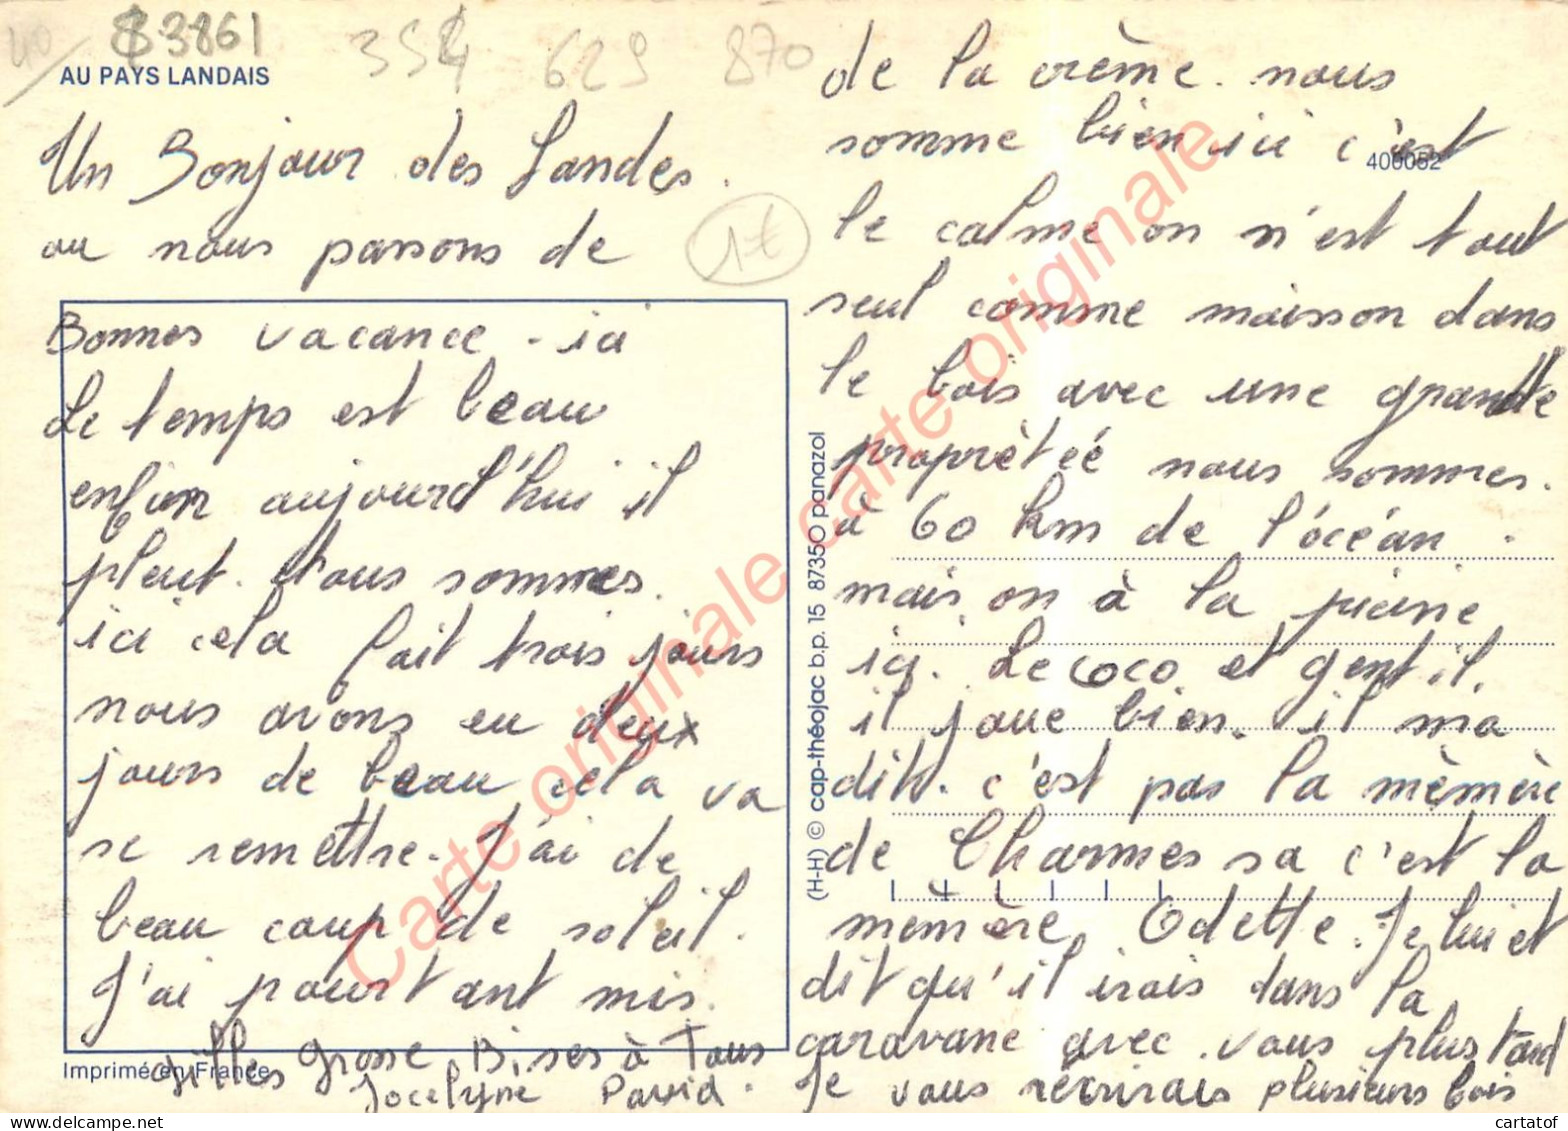 40 / 83861 354 629 870
AU PAYS LANDAIS
Un Bonjour des Landes.
ou nous passons de
1€
Bonnes vacance - ici
Le temps est beau
enfin aujourd'hui il
pleut. Nous sommes.
ici cela fait trois jours
nous avons eu deux
jours de beau cela va
se remettre. J'ai de
beau coup de soleil.
J'ai pourt ant mis.
Gilles Grosse Bises à Tous
Jocelyne David.
Imprimé en France
de la crème. nous
somme bien ici c'est
406052
le calme on n'est tout
seul comme maison dans
le bois avec une grande
propètéé nous sommes.
à 60 km de l'océan.
mais on à la picine
ici. Le coco et gentil.
il joue bien. il ma
dit. c'est pas la mèmère
de Charmes sa c'est la
memère Odette. Je lui et
dit qu'il irais dans la
caravane avec vous plus tard
Je vous récrirais plusieurs bois
(H-H) © cap-théojac b.p. 15 87350 panazol
Carte originale carte originale